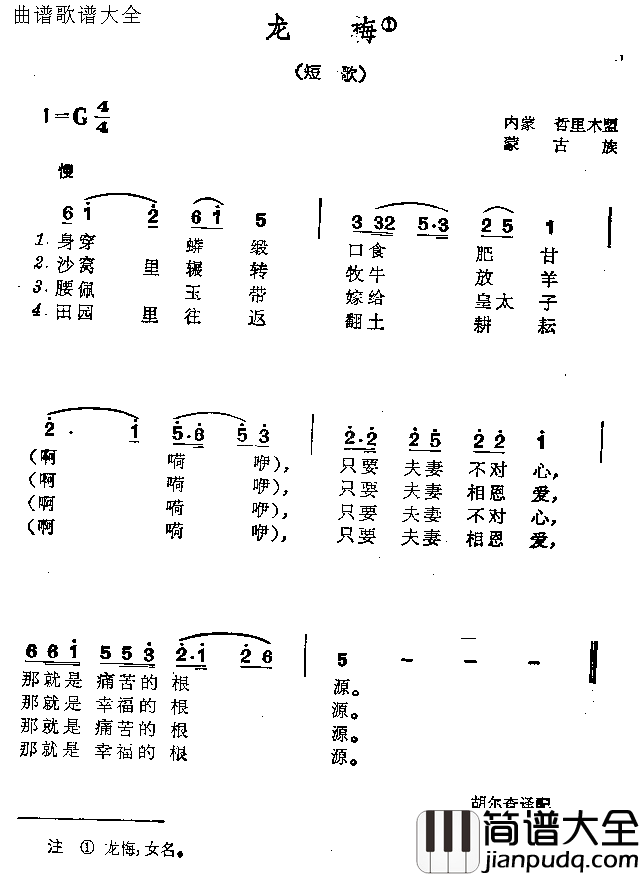 曲谱歌谱大全
龙 梅①
(短 歌)
1=G 4/4
内蒙 哲里木盟
蒙 古 族
慢
6 1 2 6 1 5 3 32 5·3 2 5 1
1. 身穿 蟒 缎 口食 肥 甘
2. 沙窝 里 辗 转 牧牛 放 羊
3. 腰佩 玉 带 嫁给 皇太 子
4. 田园 里 往 返 翻土 耕 耘
2· 1 5·6 5 3 2·2 2 5 2 2 1
(啊 嗬 咿), 只要 夫妻 不对 心,
(啊 嗬 咿), 只要 夫妻 相恩 爱,
(啊 嗬 咿), 只要 夫妻 不对 心,
(啊 嗬 咿), 只要 夫妻 相恩 爱,
6 6 1 5 5 3 2·1 2 6 5 – – –
那就是 痛苦的 根 源。
那就是 幸福的 根 源。
那就是 痛苦的 根 源。
那就是 幸福的 根 源。
胡尔查译配
注 ① 龙梅,女名。
简谱大全
jianpudq.com